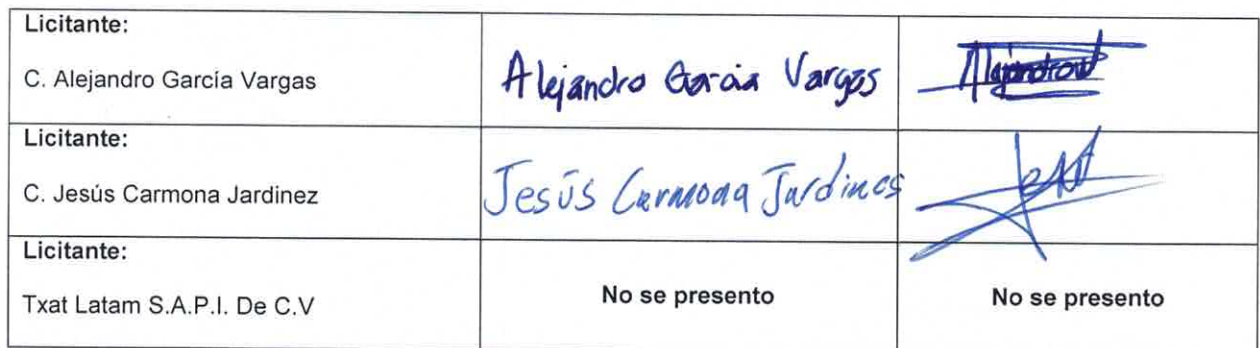 Licitante:
C. Alejandro García Vargas
Alejandro Garcia Vargas
Licitante:
C. Jesús Carmona Jardinez
Jesús Carmona Jardines
Licitante:
Txat Latam S.A.P.I. De C.V
No se presento
No se presento